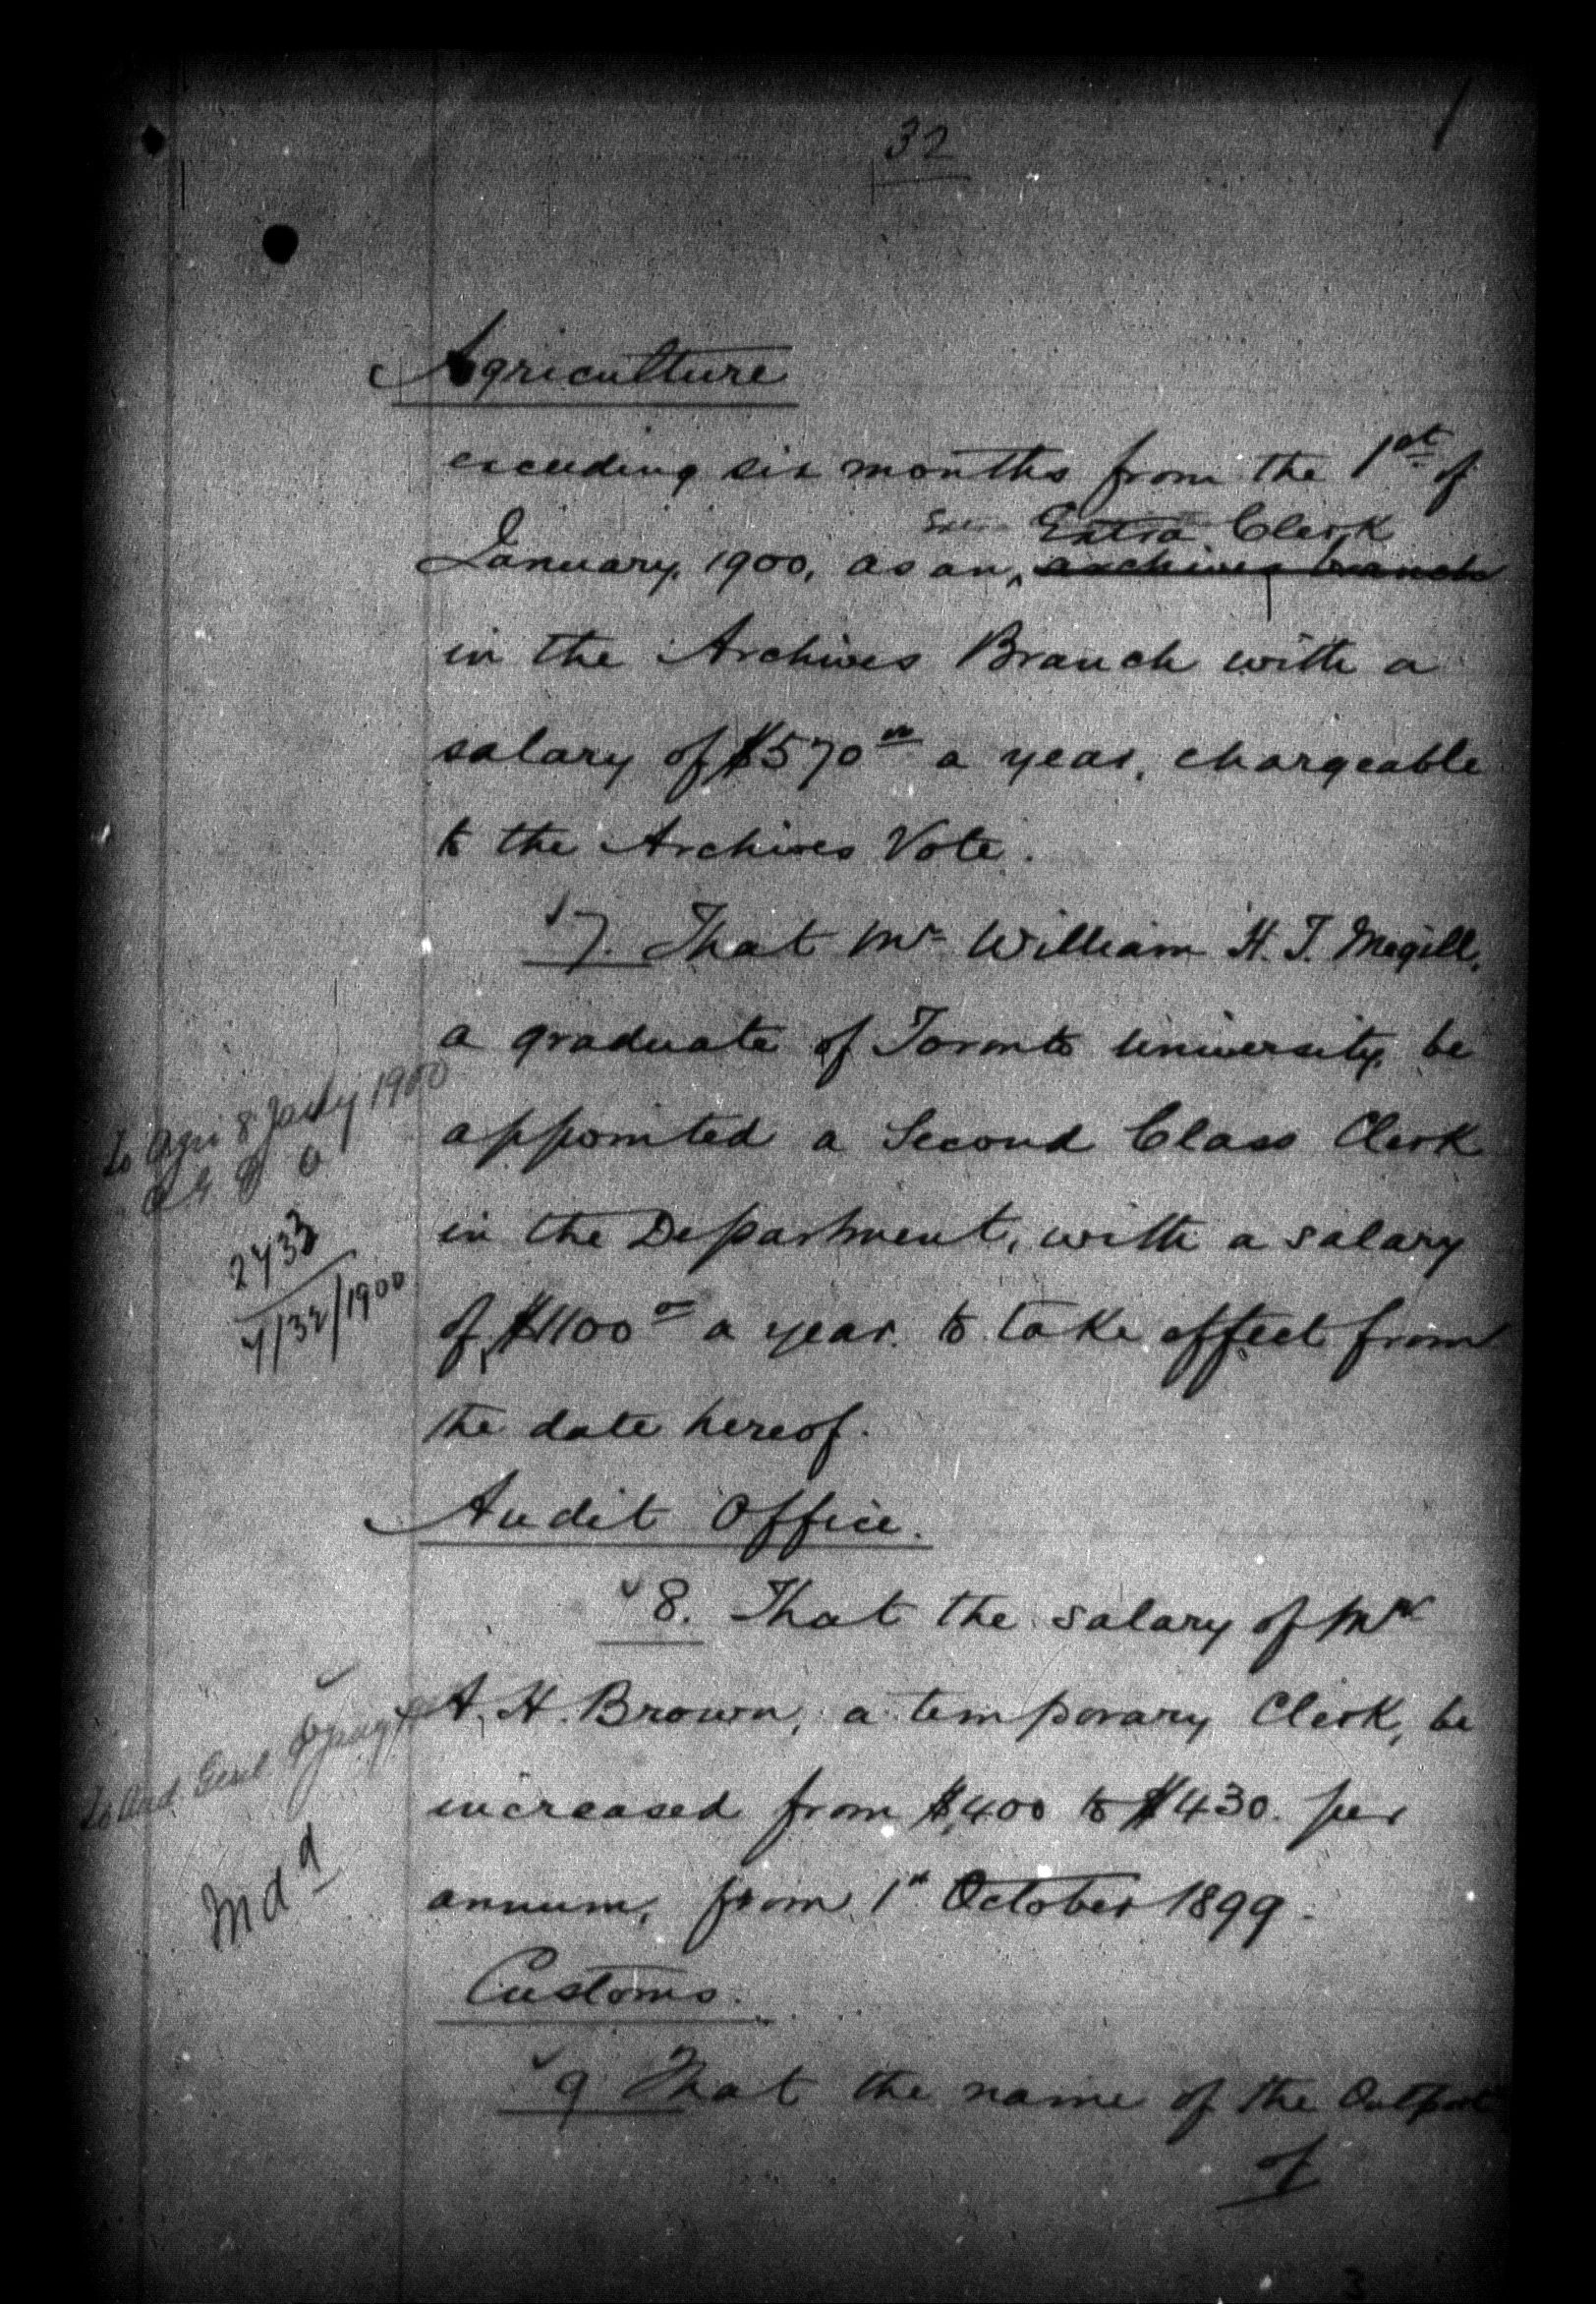 32
Agriculture
exceeding six months from the 1st of
Extra Clerk
January, 1900, as an archives branch
in the Archives Branch with a
salary of $570 00 a year, chargeable
to the Archives Vote.
7. That Mr William H. T. Megill,
a graduate of Toronto University, be
To Agri 8 Jany 1900
appointed a Second Class Clerk
2433
in the Department, with a salary
4/32/1900
of $1100 00 a year. to take effect from
the date hereof.
Audit Office.
8. That the salary of Mr
A. H. Brown, a temporary Clerk, be
To Aud. Genl
increased from $400 to $430. per
annum, from 1st October 1899.
Customs.
9 That the name of the Outport
of